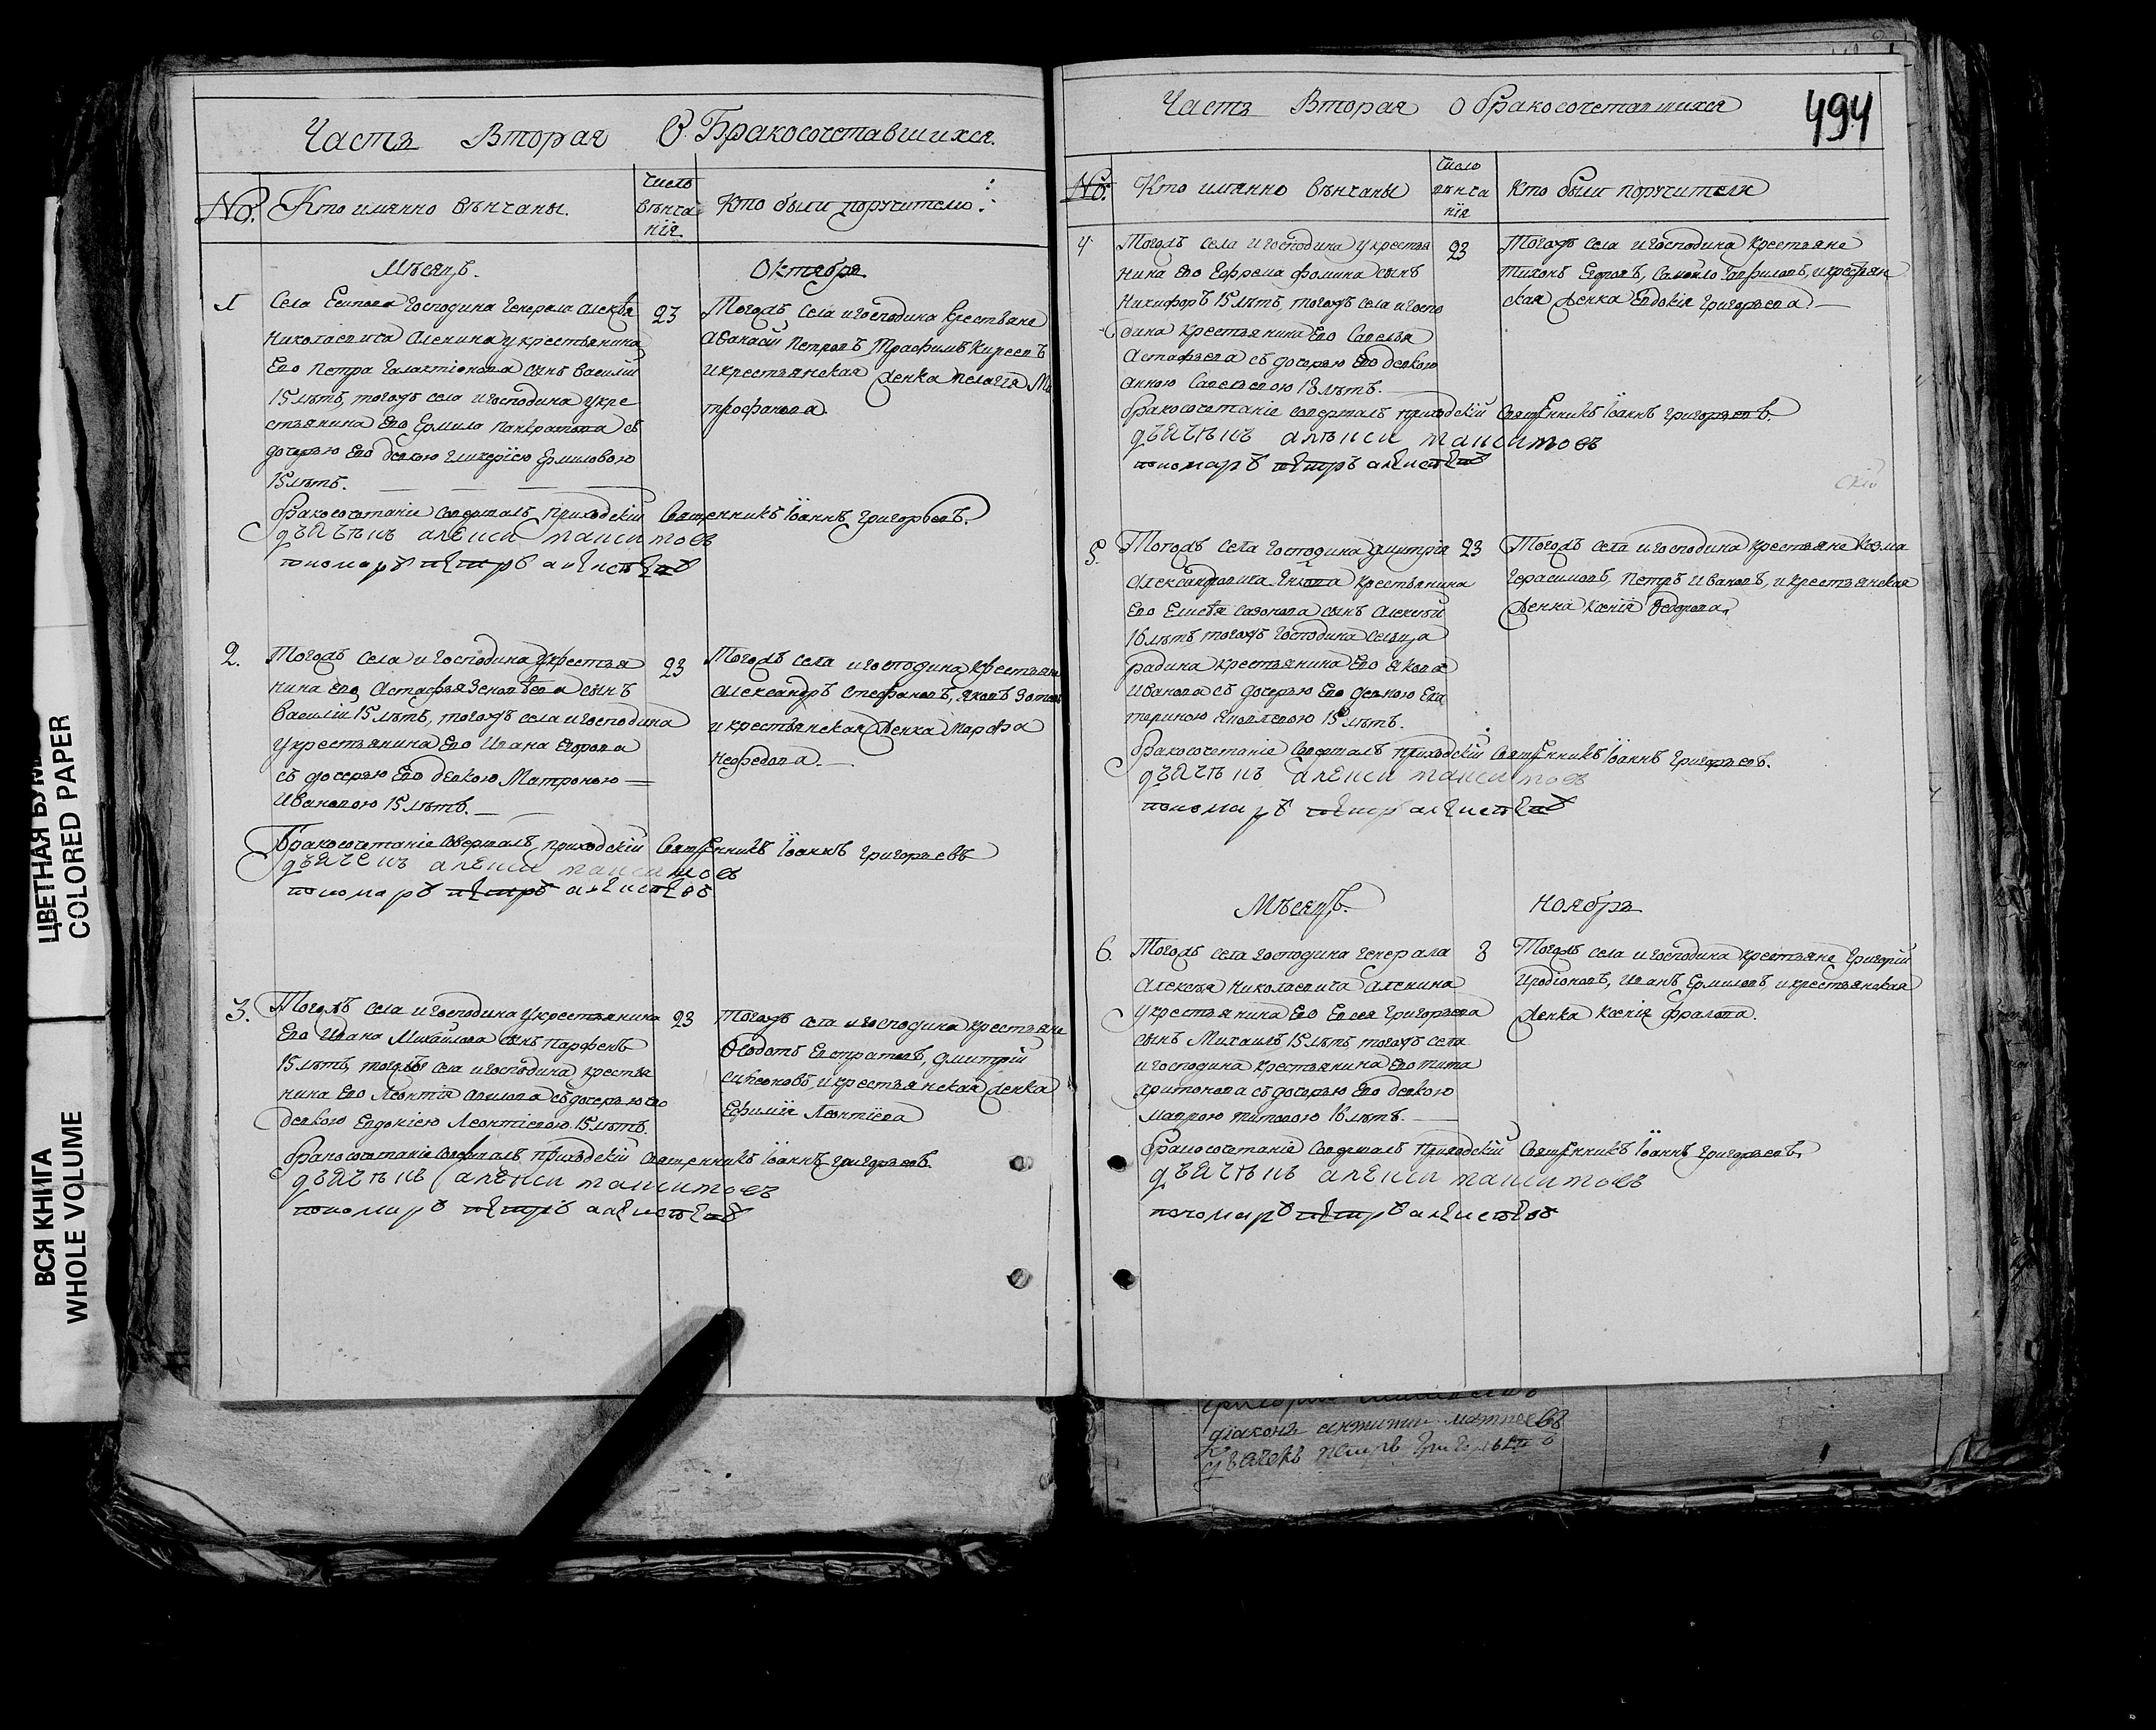 ЦВЕТНАЯ
COLORED PAPER
ВСЯ КНИГА
WHOLE VOLUME
Часть Вторая О Бракосочетавшихся.
№. Кто имянно венчаны. Число венча нїя Кто были поручители:
Месяцъ. Октября
1
Села господина Генерала
Николаевича Аленина у крестьянина
Ево Петра Галактїонова сынъ Василий
15 летъ, тогожъ села и господина у кре
стьянина Ево Ермила Панкратова съ
дочерью Ево девкою Гликерїею Ермиловою
15 летъ.
23
Тогожъ села и господина крестьяне
Афанасїй Петровъ, Трафимъ Киреевъ
и крестьянская Женка Пелагея Ми
трофанова.
Бракосочетанїе совершалъ приходскїй Священникъ Їоаннъ Григорьевъ.
дьячекъ алексей
пономарь петръ алексеевъ
2.
Тогожъ села и господина у крестья
нина ево Астафья сынъ
Василїй 15 летъ, тогожъ села и господина
у крестьянина Ево Ивана Егорова
съ дочерью Ево девкою Матроною
Ивановою 15 летъ.
23
Тогожъ села и господина крестьяне
Александръ Стефановъ, Яковъ
и крестьянская Женка Марфа
Нефедова.
Бракосочетанїе совершалъ приходскїй Священникъ Їоаннъ Григорьевъ
дьячекъ алексей
пономарь петръ алексеевъ
3.
Тогожъ села и господина у крестьянина
Ево Ивана Михайлова сынъ Парфенъ
15 летъ, тогожъ села и господина крестья
нина Ево Леонтїя съ дочерью ево
девкою Евдокїею Леонтїевою 15 летъ.
23
Тогожъ села и господина крестьяне
Федотъ Евстратовъ, Дмитрїй
и крестьянская Женка
Ефимїя Леонтїева
Бракосочетанїе совершалъ приходскїй священникъ Їоаннъ Григорьевъ.
дьячекъ алексей
пономарь петръ алексеевъ
Часть Вторая О бракосочетавшихся
494
№: Кто имянно венчаны Число венча нїя Кто были поручители
4
Тогожъ села и господина у крестья
нина ево Ефрема Фомина сынъ
Никифоръ 15 летъ, тогожъ села и госпо
дина крестьянина Ево Савелья
Астафьева съ дочерью Ево девкою
Анною Савельевою 18 летъ.
23
Тогожъ села и господина крестьяне
Тихонъ Егоровъ, Самойло Гавриловъ, и крестьян
ская Женка Евдокїя Григорьева.
Бракосочетанїе совершалъ приходскїй Священникъ Їоаннъ Григорьевъ.
дьячекъ алексей
пономарь петръ алексеевъ
5.
Тогожъ села господина Дмитрїя
Александровича крестьянина
Ево Елисея Сазонова сынъ Алексей
16 летъ тогожъ господина сельца
крестьянина Ево Якова
Иванова съ дочерью Ево девкою Ека
териною Яковлевою 15 летъ.
23
Тогожъ села и господина крестьяне Козма
Герасимовъ, Петръ Ивановъ, и крестьянская
Женка Ксенїя Федорова.
Бракосочетанїе совершалъ приходскїй Священникъ Їоаннъ Григорьевъ.
дьячекъ алексей
пономарь петръ алексеевъ
Месяцъ. Ноябрь
6.
Тогожъ села господина генерала
Алексея Николаевича Аленина
у крестьянина Ево Евсея Григорьева
сынъ Михаилъ 15 летъ, тогожъ села
и господина крестьянина Ево Тита
Харитонова съ дочерью Ево девкою
Маврою Титовою 16 летъ.
8
Тогожъ села и господина крестьяне Григорїй
Иродїоновъ, Иванъ Ермиловъ, и крестьянская
Женка Ксенїя Фралова.
Бракосочетанїе совершалъ приходскїй Священникъ Їоаннъ Григорьевъ.
дьячекъ алексей
пономарь петръ алексеевъ
дїаконъ
дьячекъ петръ григорьевъ